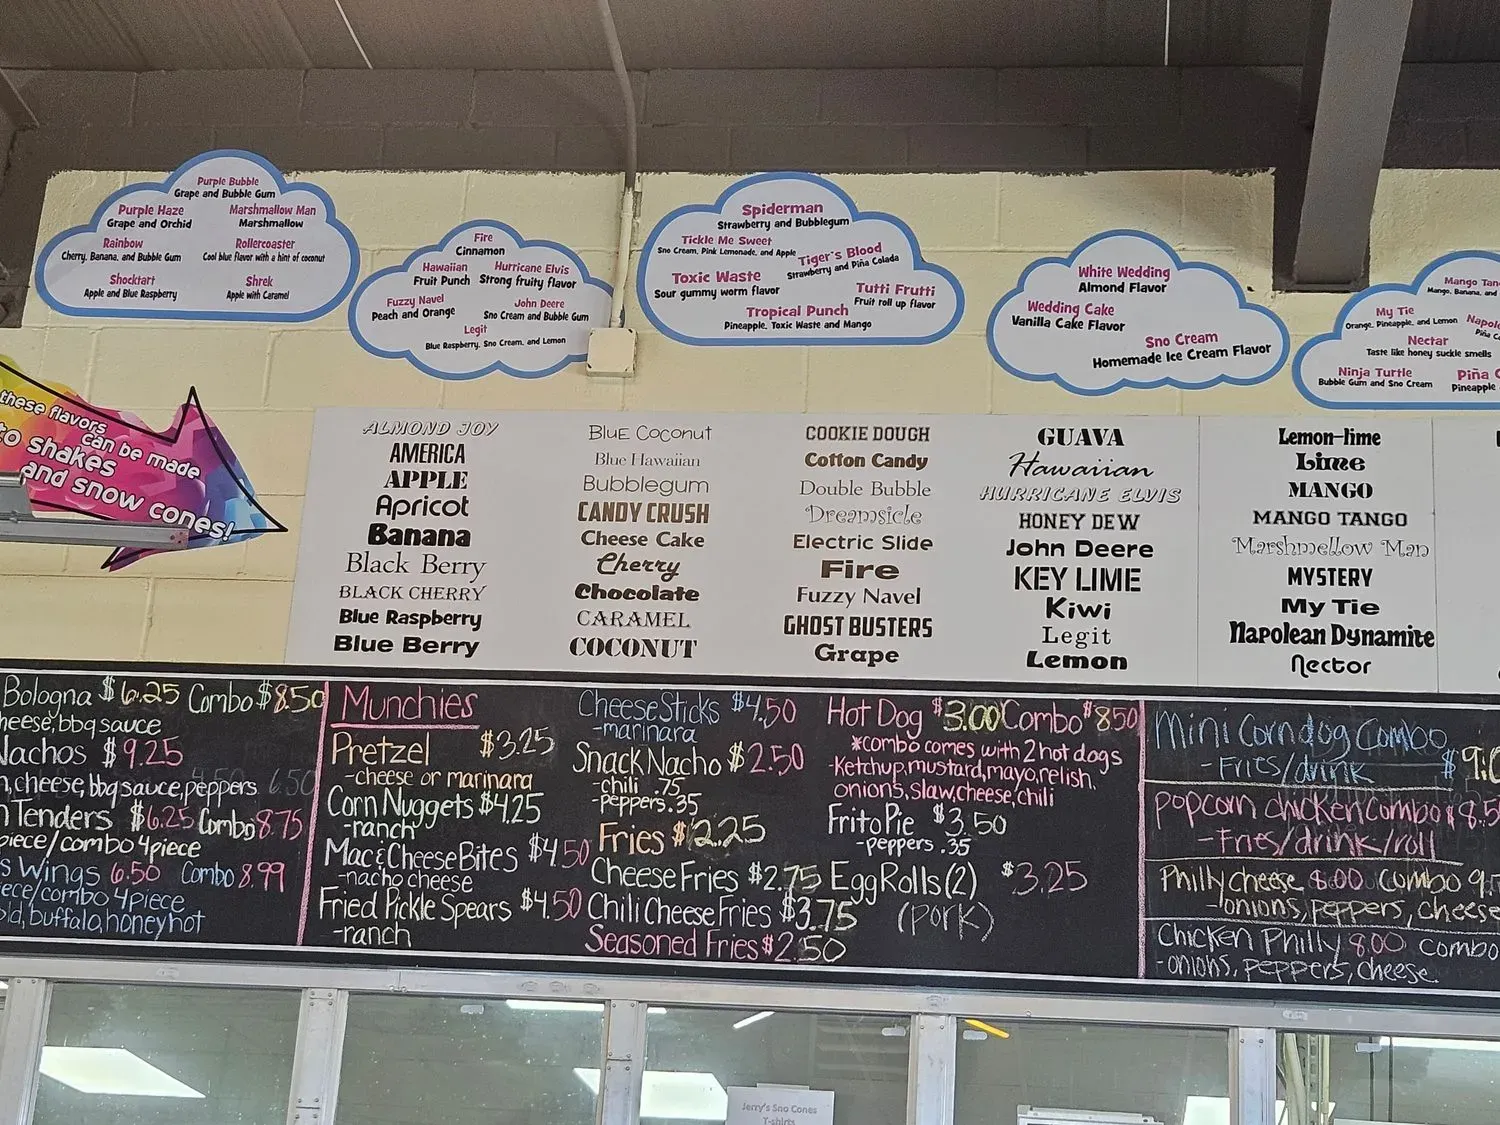 Purple Bubble
Grape and Bubble Gum
Purple Haze
Grape and Orchid
Marshmallow Man
Marshmallow
Rainbow
Cherry, Banana, and Bubble Gum
Rollercoaster
Cool blue flavor with a hint of coconut
Shocktart
Apple and Blue Raspberry
Shrek
Apple with Caramel
Fire
Cinnamon
Hawaiian
Fruit Punch
Hurricane Elvis
Strong fruity flavor
Fuzzy Navel
Peach and Orange
John Deere
Sno Cream and Bubble Gum
Legit
Blue Raspberry, Sno Cream, and Lemon
Spiderman
Strawberry and Bubblegum
Tickle Me Sweet
Sno Cream, Pink Lemonade, and Apple
Tiger's Blood
Strawberry and Piña Colada
Toxic Waste
Sour gummy worm flavor
Tutti Frutti
Fruit roll up flavor
Tropical Punch
Pineapple, Toxic Waste and Mango
White Wedding
Almond Flavor
Wedding Cake
Vanilla Cake Flavor
Sno Cream
Homemade Ice Cream Flavor
Mango Tan
Mango, Banana, and
My Tie
Orange, Pineapple, and Lemon
Napol
Piña C
Nectar
Taste like honey suckle smells
Ninja Turtle
Bubble Gum and Sno Cream
Piña C
Pineapple
these flavors
can be made
to shakes
and snow cones!
ALMOND JOY
AMERICA
APPLE
Apricot
Banana
Black Berry
BLACK CHERRY
Blue Raspberry
Blue Berry
BluE Coconut
Blue Hawaiian
Bubblegum
CANDY CRUSH
Cheese Cake
Cherry
Chocolate
CARAMEL
COCONUT
COOKIE DOUGH
Cotton Candy
Double Bubble
Dreamsicle
Electric Slide
Fire
Fuzzy Navel
GHOST BUSTERS
Grape
GUAVA
Hawaiian
HURRICANE ELVIS
HONEY DEW
John Deere
KEY LIME
Kiwi
Legit
Lemon
Lemon-lime
Lime
MANGO
MANGO TANGO
Marshmellow Man
MYSTERY
My Tie
Napolean Dynamite
Nector
Bologna $6.25 Combo $8.50
heese, bbq sauce
Nachos $9.25
n, cheese, bbq sauce, peppers 6.50
n Tenders $6.25 Combo 8.75
piece/combo 4piece
s Wings 6.50 Combo 8.99
iece/combo 4piece
old, buffalo, honey hot
Munchies
Pretzel $3.25
-cheese or marinara
Corn Nuggets $4.25
-ranch
Mac & Cheese Bites $4.50
-nacho cheese
Fried Pickle Spears $4.50
-ranch
Cheese Sticks $4.50
-marinara
Snack Nacho $2.50
-chili .75
-peppers .35
Fries $2.25
Cheese Fries $2.75
Chili Cheese Fries $3.75
Seasoned Fries $2.50
Hot Dog $3.00 Combo $8.50
*combo comes with 2 hot dogs
-Ketchup, mustard, mayo, relish,
onions, slaw, cheese, chili
Frito Pie $3.50
-peppers .35
Egg Rolls (2) $3.25
(pork)
Mini Corndog Combo
-Fries/drink $9.0
popcorn chicken combo $8.5
-Fries/drink/roll
Philly cheese 8.00 combo 9.
-onions, peppers, cheese
Chicken Philly 8.00 combo
-onions, peppers, cheese.
Jerry's Sno Cones
T-shirts